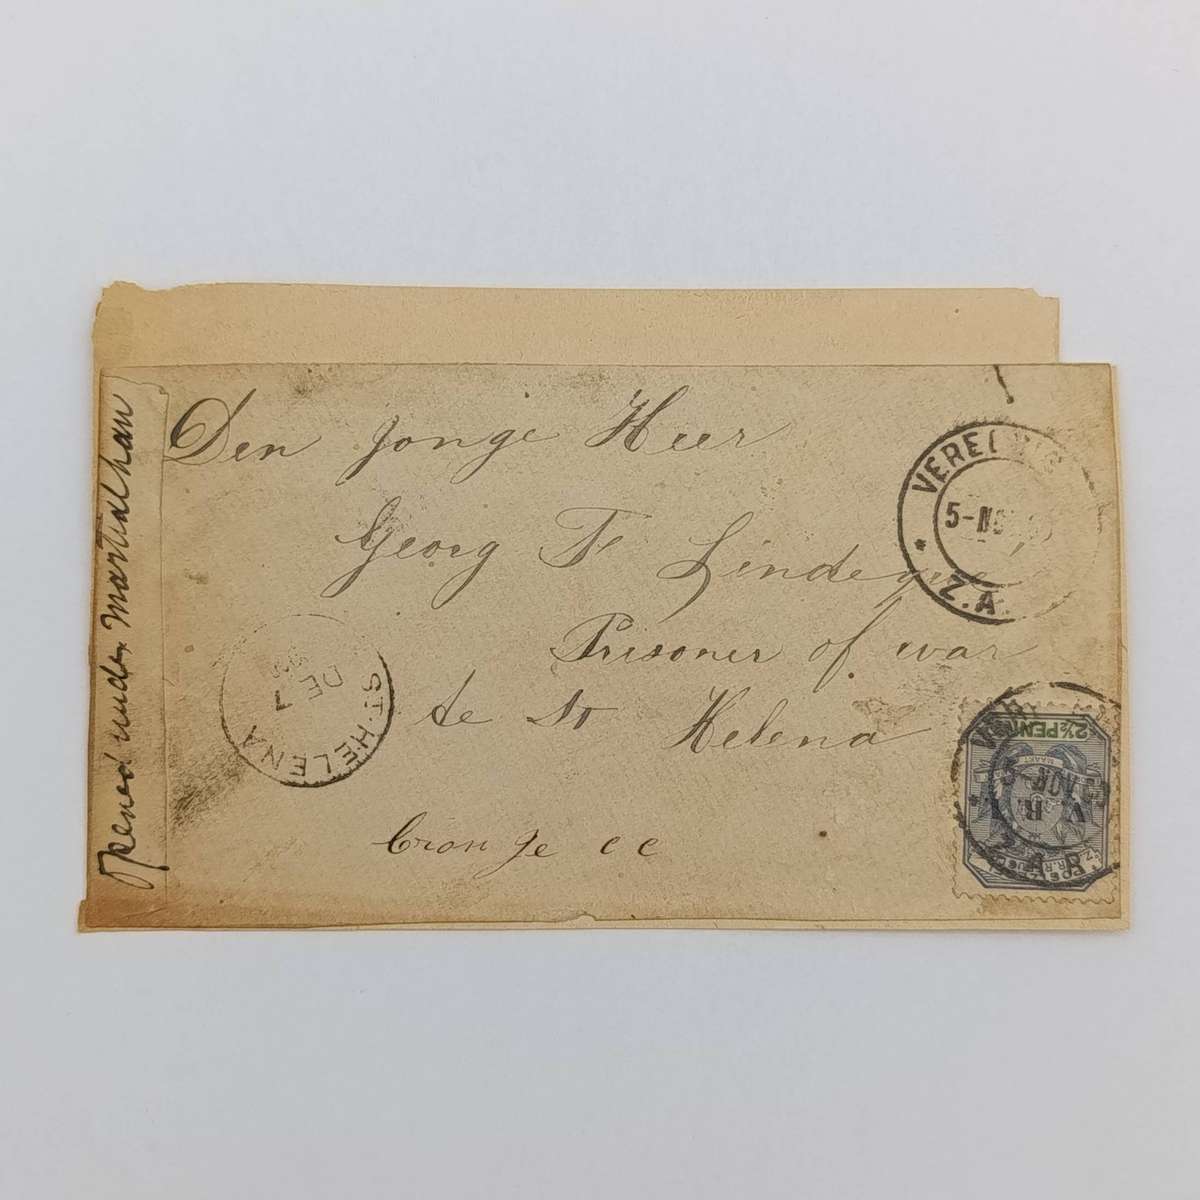 Den jonge Heer
Georg F Lindeque
Prisoner of war
te St Helena
Cronje cc
Opened under Martial law
VEREENIGING
5-NOV
Z.A.
ST. HELENA
DE 7
2½ PENNY
V.R.I.
5-NOV
Z.A.R.
MAAKT